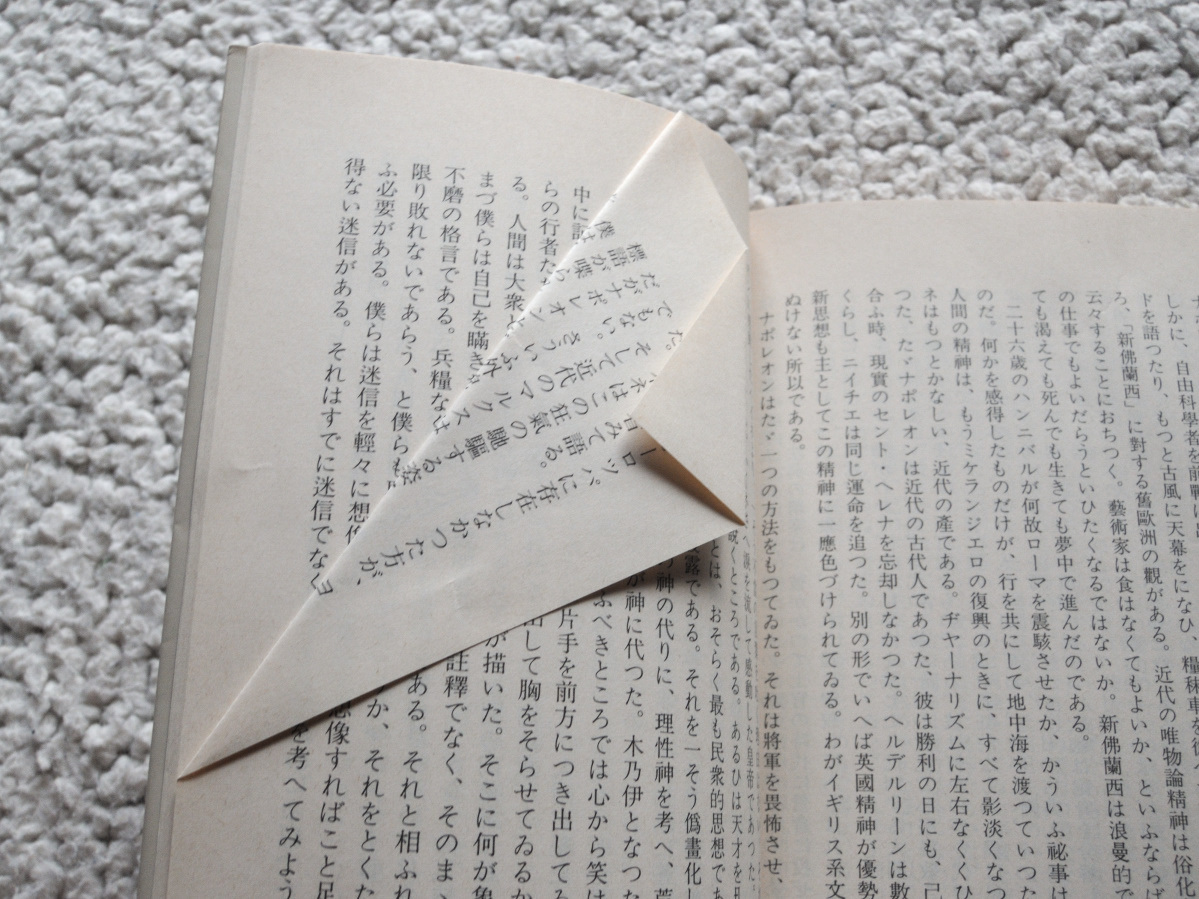 しかに、自由科學
ドを語つたり、もつと古風に天幕をになひ、糧秣車を
ろ、「新佛蘭西」に對する舊歐洲の觀がある。近代の唯物論精神は俗化
云々することにおちつく。藝術家は食はなくてもよいか、といふならば
の仕事でもよいだらうといひたくなるではないか。新佛蘭西は浪曼的で
ても渇えても死んでも生きても夢中で進んだのである。
二十六歳のハンニバルが何故ローマを震駭させたか、かういふ祕事は
のだ。何かを感得したものだけが、行を共にして地中海を渡つていつた
人間の精神は、もうミケランジエロの復興のときに、すべて影淡くなつ
ネはもつとかなしい、近代の產である。ヂヤーナリズムに左右なくくひ
つた、たゞナポレオンは近代の古代人であつた、彼は勝利の日にも、己
合ふ時、現實のセント・ヘレナを忘却しなかつた。ヘルデルリーンは數
くらし、ニイチエは同じ運命を追つた。別の形でいへば英國精神が優勢
新思想も主としてこの精神に一應色づけられてゐる。わがイギリス系文
ぬけない所以である。
ナポレオンはたゞ一つの方法をもつてゐた。それは將軍を畏怖させ、
へ涙を流して感動した皇帝であつた。
說くところである。あるひは天才を
とは、おそらく最も民衆的思想であ
露である。それを一そう僞畫化し
神の代りに、理性神を考へ、
が神に代つた。木乃伊となつた
ふべきところでは心から笑は
片手を前方につき出してゐ
出して胸をそらせてゐるか
が描いた。そこに何が象
註釋でなく、そのまゝ
ある。それと相ふれ
か、それをとくた
想像すればこと足
を考へてみよう
中に
らの行者た
る。人間は大衆と
まづ僕らは自己を瞞き
不磨の格言である。兵糧な
限り敗れないであらう、と僕らも
ふ必要がある。僕らは迷信を輕々に想像
得ない迷信がある。それはすでに迷信でなく
僕
標語が喋
だがナポレオン
でもない。さういふ
だ。そして近代のマルクス
ネはこの狂氣の馳驅する姿
みて語る。
ーロツパに存在しなかつた方が、